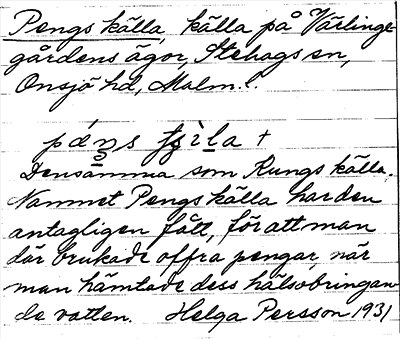 Pengs källa, källa på Värlinge-
gårdens ägor, Stehags sn,
Onsjö hd, Malm. l.
Densamma som Kungs källa.
Namnet Pengs källa har den
antagligen fått, för att man
där brukade offra pengar, när
man hämtade dess hälsobringan
de vatten. Helga Persson 1931